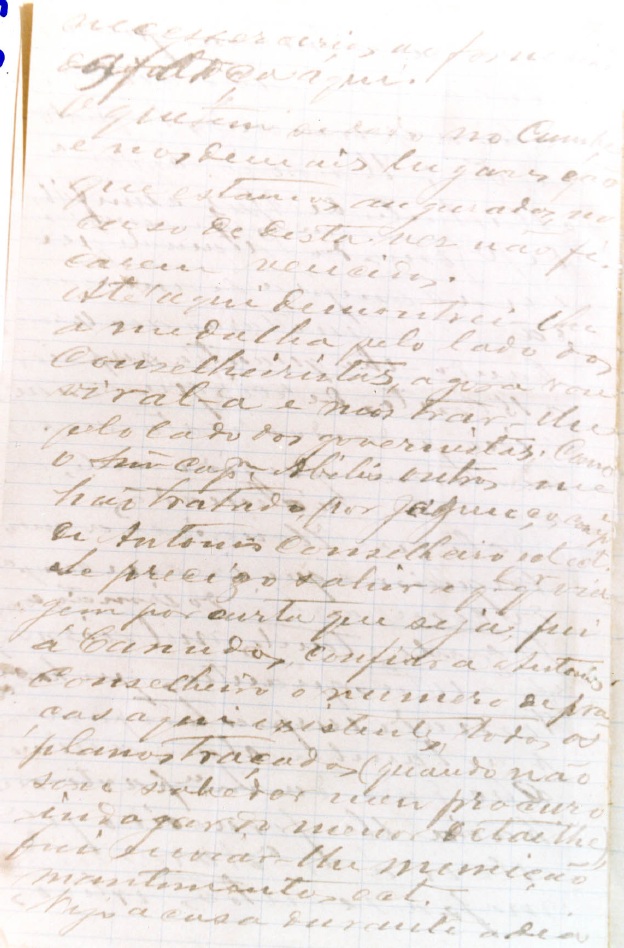 necessarios, se for
e falta aqui.
no Cumbe
e nos demais lugares, são
que estamos segurados, no
caso de desta vez não fi-
carem vencidos.
Até aqui demonstrei-lhe
a medalha pelo lado dos
Conselheiristas, agora vou
viral-a e mostrar-lhe
pelo lado dos governistas. Como
o Snr. cap.m Abilio outros me
hão tratado, por
de Antonio Conselheiro et cet.
Se precizo sahir e q.q.r via
gem por curta que seja, fui
á Canudos, confiar a Antonio
Conselheiro o numero de pra
ças aqui existente, todos os
planos traçados (quando não
sou sabedor nem procuro
indagar do menor detalhe)
fui levar-lhe munição
mantimentos, cet.
a casa durante o dia